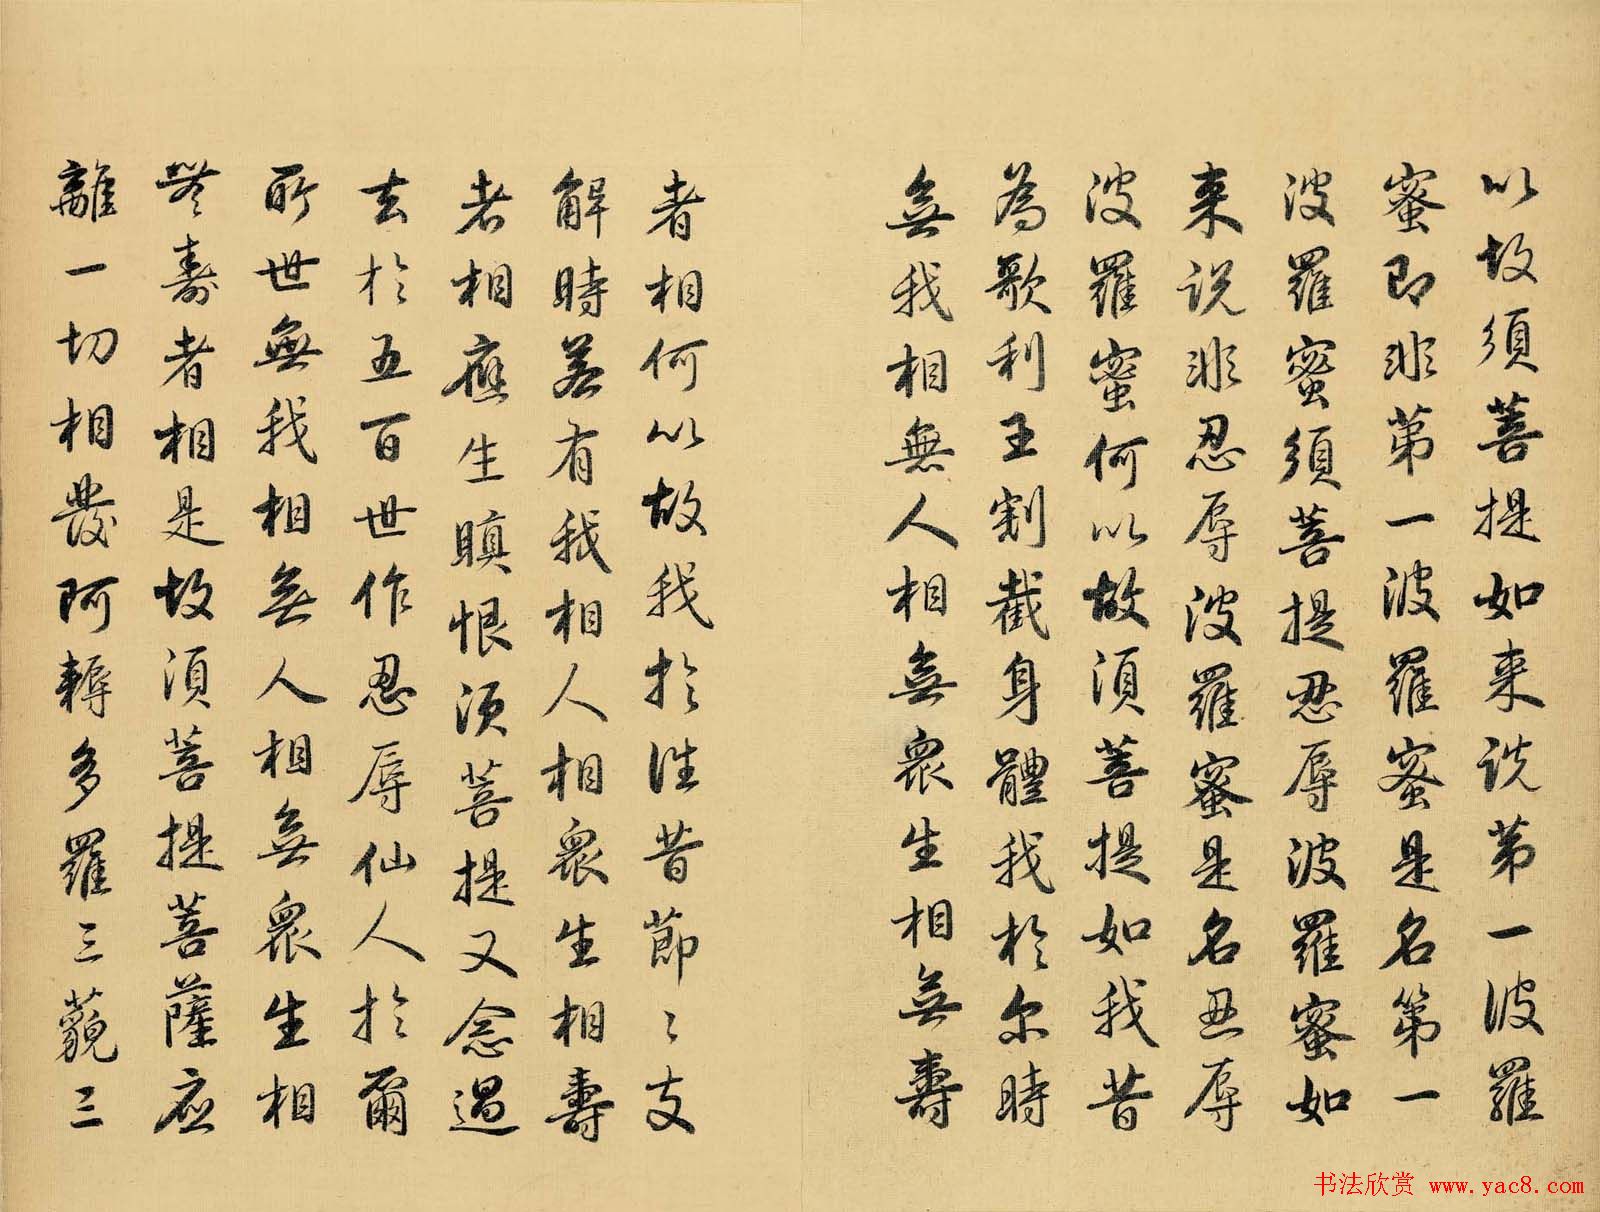 以故須菩提如来説第一波羅
蜜即非第一波羅蜜是名第一
波羅蜜須菩提忍辱波羅蜜如
来説非忍辱波羅蜜是名忍辱
波羅蜜何以故須菩提如我昔
為歌利王割截身體我於尔時
無我相無人相無衆生相無壽
者相何以故我於往昔節〻支
解時若有我相人相衆生相壽
者相應生瞋恨須菩提又念過
去於五百世作忍辱仙人於爾
所世無我相無人相無衆生相
無壽者相是故須菩提菩薩应
離一切相發阿耨多羅三藐三
书法欣赏 www.yac8.com